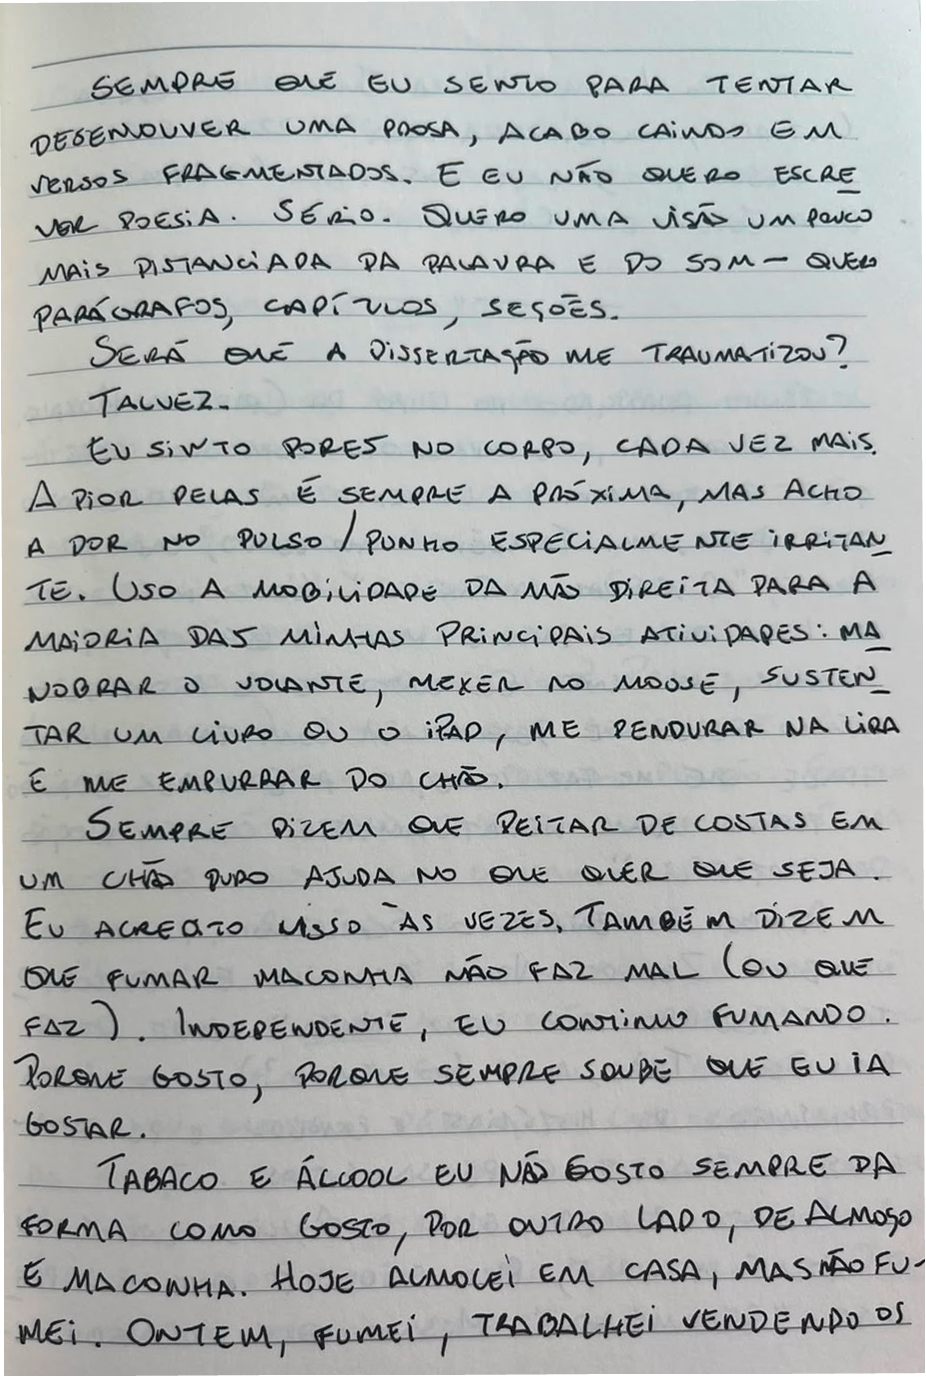 SEMPRE QUE EU SENTO PARA TENTAR
DESENVOLVER UMA PROSA, ACABO CAINDO EM
VERSOS FRAGMENTADOS. E EU NÃO QUERO ESCRE
VER POESIA. SÉRIO. QUERO UMA VISÃO UM POUCO
MAIS DISTANCIADA DA PALAVRA E DO SOM — QUERO
PARÁGRAFOS, CAPÍTULOS, SEÇÕES.
SERÁ QUE A DISSERTAÇÃO ME TRAUMATIZOU?
TALVEZ.
EU SINTO DORES NO CORPO, CADA VEZ MAIS.
A PIOR DELAS É SEMPRE A PRÓXIMA, MAS ACHO
A DOR NO PULSO/PUNHO ESPECIALMENTE IRRITAN
TE. USO A MOBILIDADE DA MÃO DIREITA PARA A
MAIORIA DAS MINHAS PRINCIPAIS ATIVIDADES: MA
NOBRAR O VOLANTE, MEXER NO MOUSE, SUSTEN
TAR UM LIVRO OU O iPAD, ME PENDURAR NA LIRA
E ME EMPURRAR DO CHÃO.
SEMPRE DIZEM QUE DEITAR DE COSTAS EM
UM CHÃO DURO AJUDA NO QUE QUER QUE SEJA.
EU ACREDITO NISSO ÀS VEZES. TAMBÉM DIZEM
QUE FUMAR MACONHA NÃO FAZ MAL (OU QUE
FAZ). INDEPENDENTE, EU CONTINUO FUMANDO.
PORQUE GOSTO, PORQUE SEMPRE SOUBE QUE EU IA
GOSTAR.
TABACO E ÁLCOOL EU NÃO GOSTO SEMPRE DA
FORMA COMO GOSTO, POR OUTRO LADO, DE ALMOÇO
E MACONHA. HOJE ALMOCEI EM CASA, MAS NÃO FU-
MEI. ONTEM, FUMEI, TRABALHEI VENDENDO OS